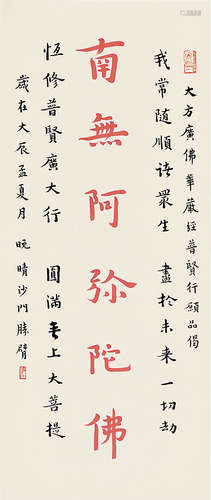 大方廣佛華嚴經普賢行願品偈
我常隨順諸眾生　盡於未來一切劫
南無阿彌陀佛
恆修普賢廣大行　圓滿无上大菩提
歲在大辰孟夏月　晚晴沙門勝臂